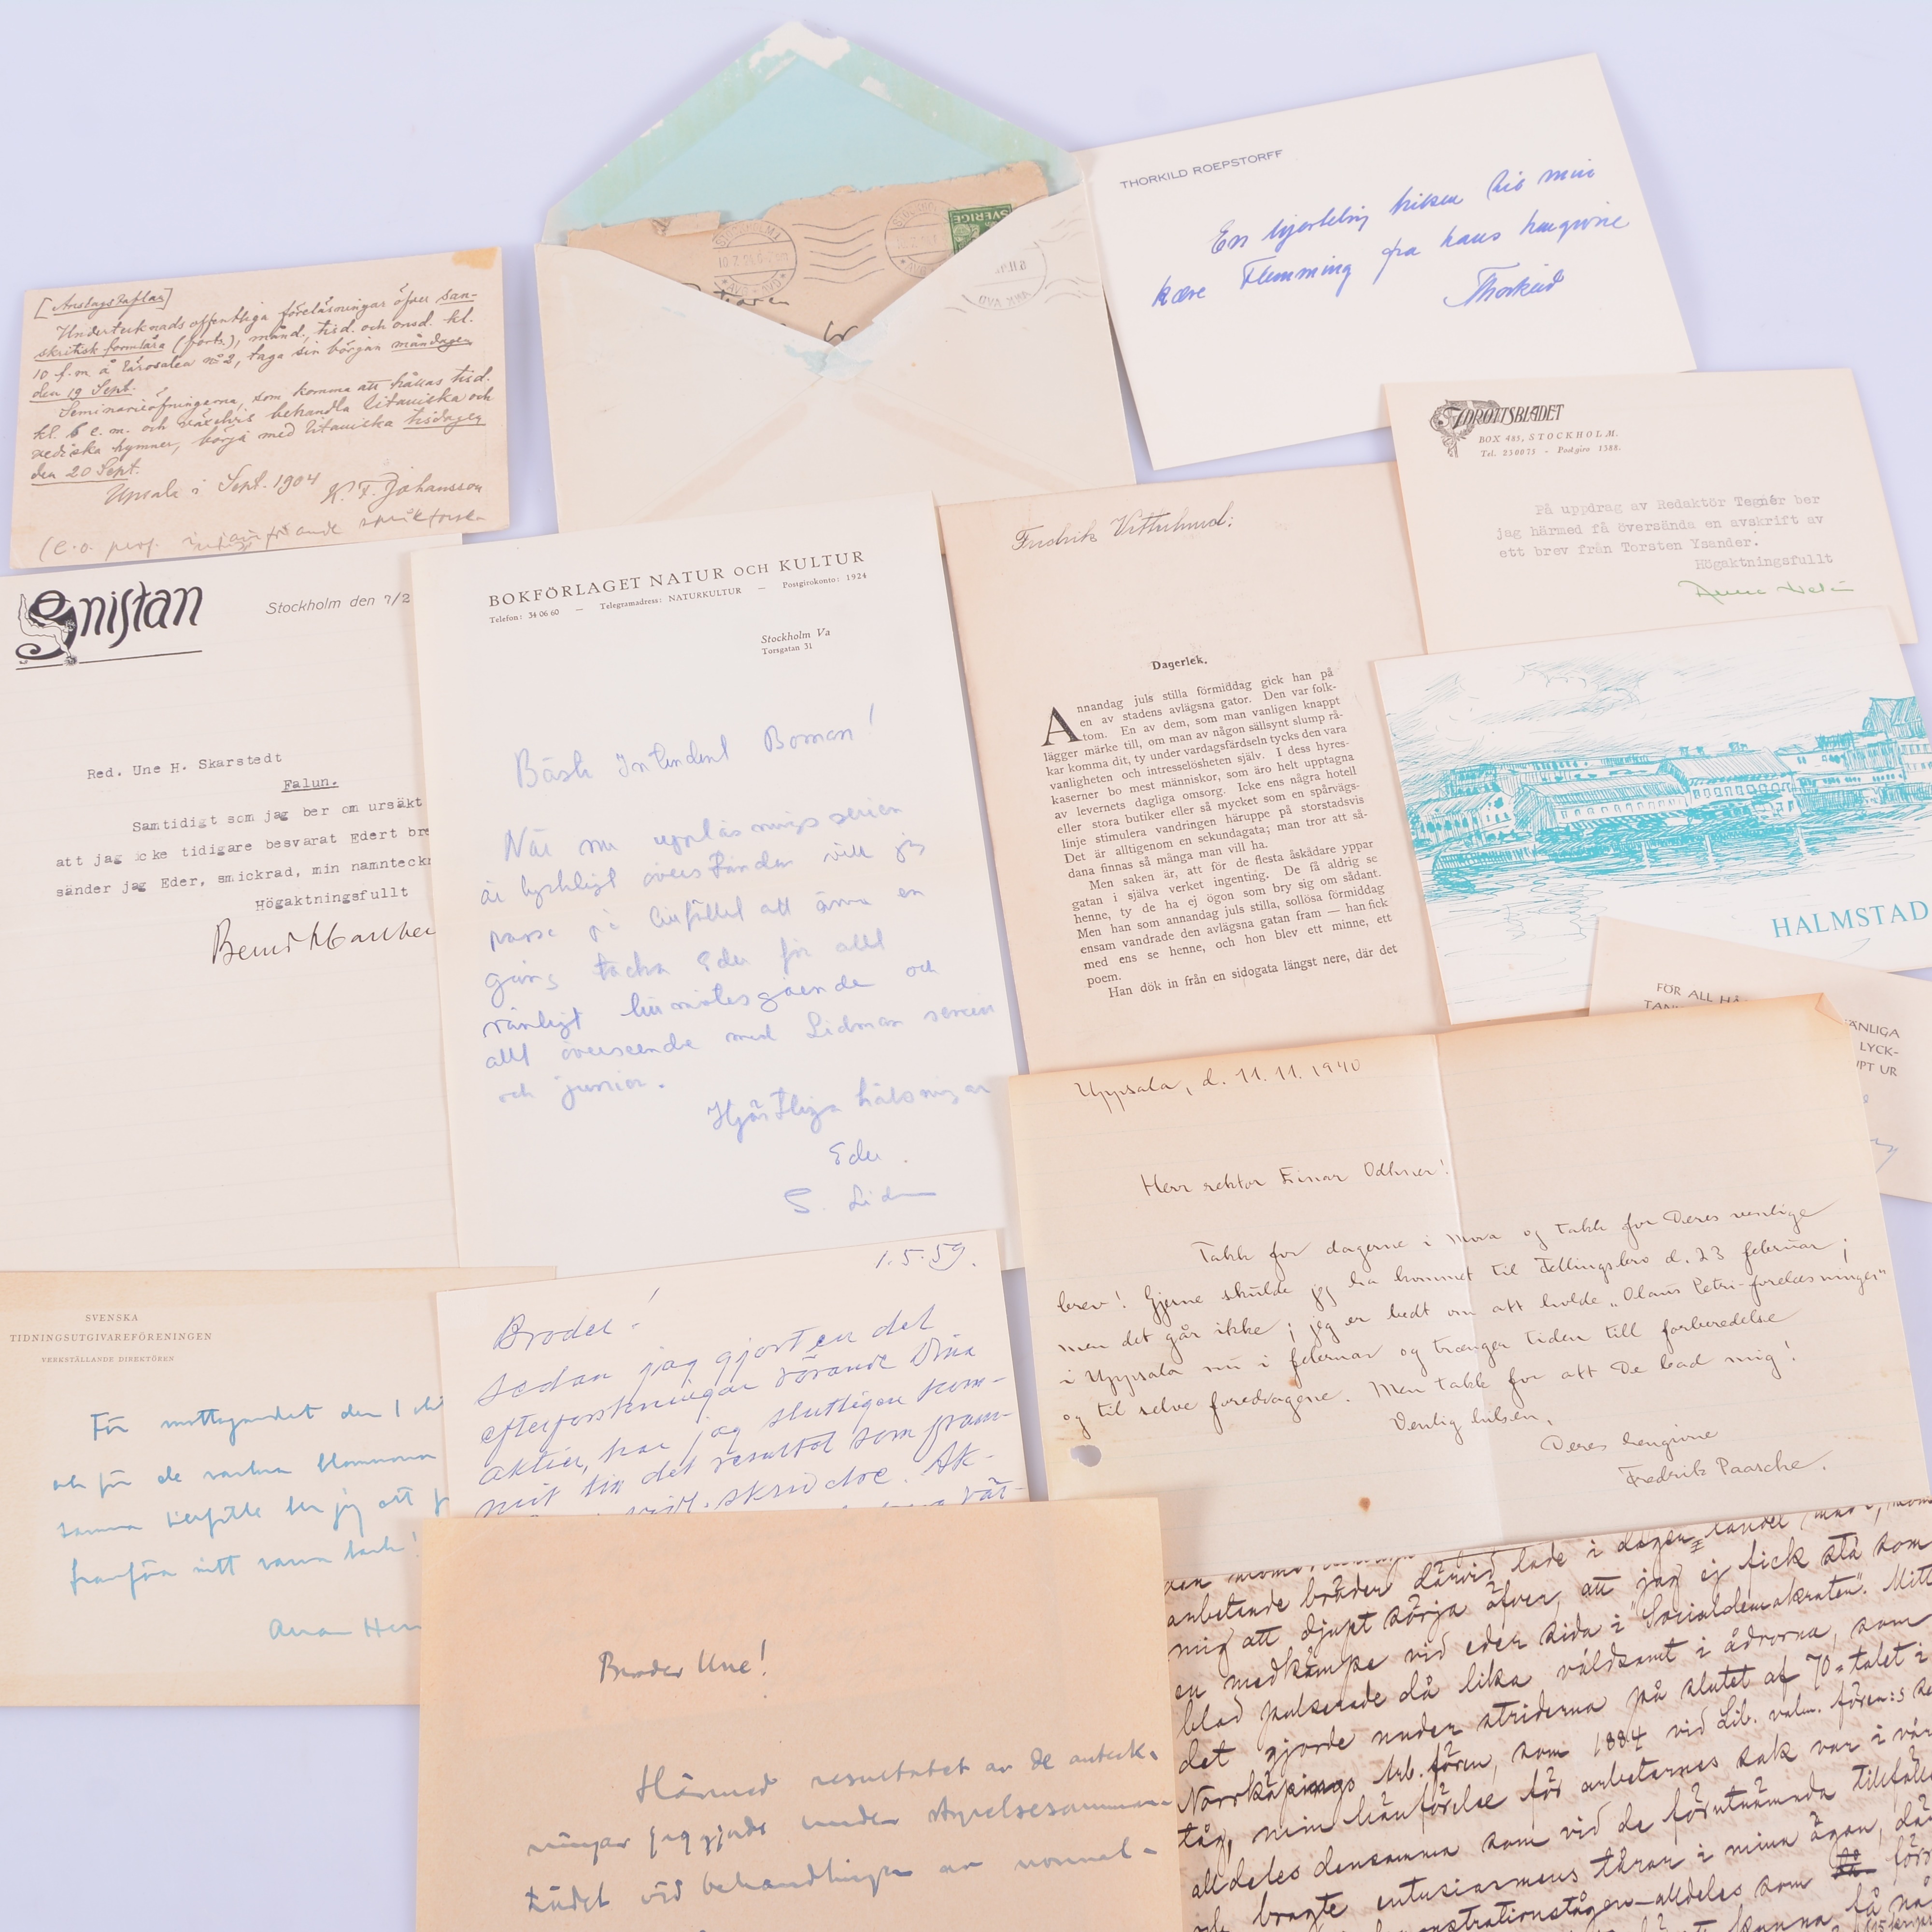 THORKILD ROEPSTORFF
En hjertelig hilsen til min
kære Flemming fra hans hengivne
Thorkild
SVERIGE
[Anslagstaflan]
Undertecknads offentliga föreläsningar öfver san-
skritisk formlära (forts.), månd., tisd. och onsd. kl.
10 f.m. å lärosalen nº 2, taga sin början måndagen
den 19 Sept.
Seminarieöfningarna, som komma att hållas tisd.
kl. 6 e.m. och växelvis behandla litauiska och
vediska hymner, börja med litauiska tisdagen
den 20 Sept.
Upsala i Sept. 1904
K. F. Johansson
(e.o. prof. i jämförande språkforskn
IDROTTSBLADET
BOX 485, STOCKHOLM.
Tel. 230075 - Postgiro 1588.
På uppdrag av Redaktör Tegnér ber
jag härmed få översända en avskrift av
ett brev från Torsten Ysander.
Högaktningsfullt
Gnistan
Stockholm den 7/2
Red. Une H. Skarstedt
Falun.
Samtidigt som jag ber om ursäkt
att jag icke tidigare besvarat Edert bre
sänder jag Eder, smickrad, min namnteckn
Högaktningsfullt
BOKFÖRLAGET NATUR OCH KULTUR
Telefon: 34 06 60 — Telegramadress: NATURKULTUR — Postgirokonto: 1924
Stockholm Va
Torsgatan 31
Bäste Intendent Boman!
När nu uppläsningsserien
är lyckligt överstånden vill jag
passa på tillfället att ännu en
gång tacka Eder för allt
vänligt tillmötesgående och
allt överseende med Lidman senior
och junior.
Hjärtliga hälsningar
Eder
S. Lidman
Fredrik
Dagerlek.
Annandag juls stilla förmiddag gick han på
en av stadens avlägsna gator. Den var folk-
tom. En av dem, som man vanligen knappt
lägger märke till, om man av någon sällsynt slump rå-
kar komma dit, ty under vardagsfärdseln tycks den vara
vanligheten och intresselösheten själv. I dess hyres-
kaserner bo mest människor, som äro helt upptagna
av levernets dagliga omsorg. Icke ens några hotell
eller stora butiker eller så mycket som en spårvägs-
linje stimulera vandringen häruppe på storstadsvis
Det är alltigenom en sekundagata; man tror att så-
dana finnas så många man vill ha.
Men saken är, att för de flesta åskådare yppar
gatan i själva verket ingenting. De få aldrig se
henne, ty de ha ej ögon som bry sig om sådant.
Men han som annandag juls stilla, sollösa förmiddag
ensam vandrade den avlägsna gatan fram — han fick
med ens se henne, och hon blev ett minne, ett
poem.
Han dök in från en sidogata längst nere, där det
HALMSTAD
FÖR ALL
ÄNLIGA
LYCK-
PT UR
Uppsala, d. 11.11.1940
Herr rektor Einar Odhner!
Takk for dagerne i Mora og takk for Deres venlige
brev! Gjerne skulde jeg ha kommet til Fellingsbro d. 23 februar;
men det går ikke; jeg er bedt om att holde „Olaus Petri-forelæsninger"
i Uppsala nu i februar og trænger tiden till forberedelse
og til selve foredragene. Men takk for att De bad mig!
Venlig hilsen,
Deres hengivne
Fredrik Paasche.
SVENSKA
TIDNINGSUTGIVAREFÖRENINGEN
VERKSTÄLLANDE DIREKTÖREN
För mottagandet den 1
och för de vackra blommorna
samma tillfälle ber jag att
framföra mitt varma tack!
1.5.59.
Broder!
Sedan jag gjort en del
efterforskningar rörande Dina
aktier, har jag slutligen kom-
mit till det resultat som fram-
Broder Une!
Härmed resultatet av de anteck-
ningar jag gjorde under styrelsesamman-
trädet vid behandlingen av normal-
arbetande bröder därvid lade i dagen
mig att djupt sörja öfver, att jag ej fick stå som
en medkämpe vid eder sida i "Socialdemokraten". Mitt
blod pulserade då lika våldsamt i ådrorna, som
det gjorde under striderna på slutet af 70-talet i
Norrköpings Arb.fören, som 1884 vid Lib. valm. fören:s
tåg, min hänförelse för arbetarnes sak var i vår
alldeles densamma som vid de förutnämnda tillfäll
bragte entusiasmens tårar i mina ögon, då
demonstrationstågen—alldeles som